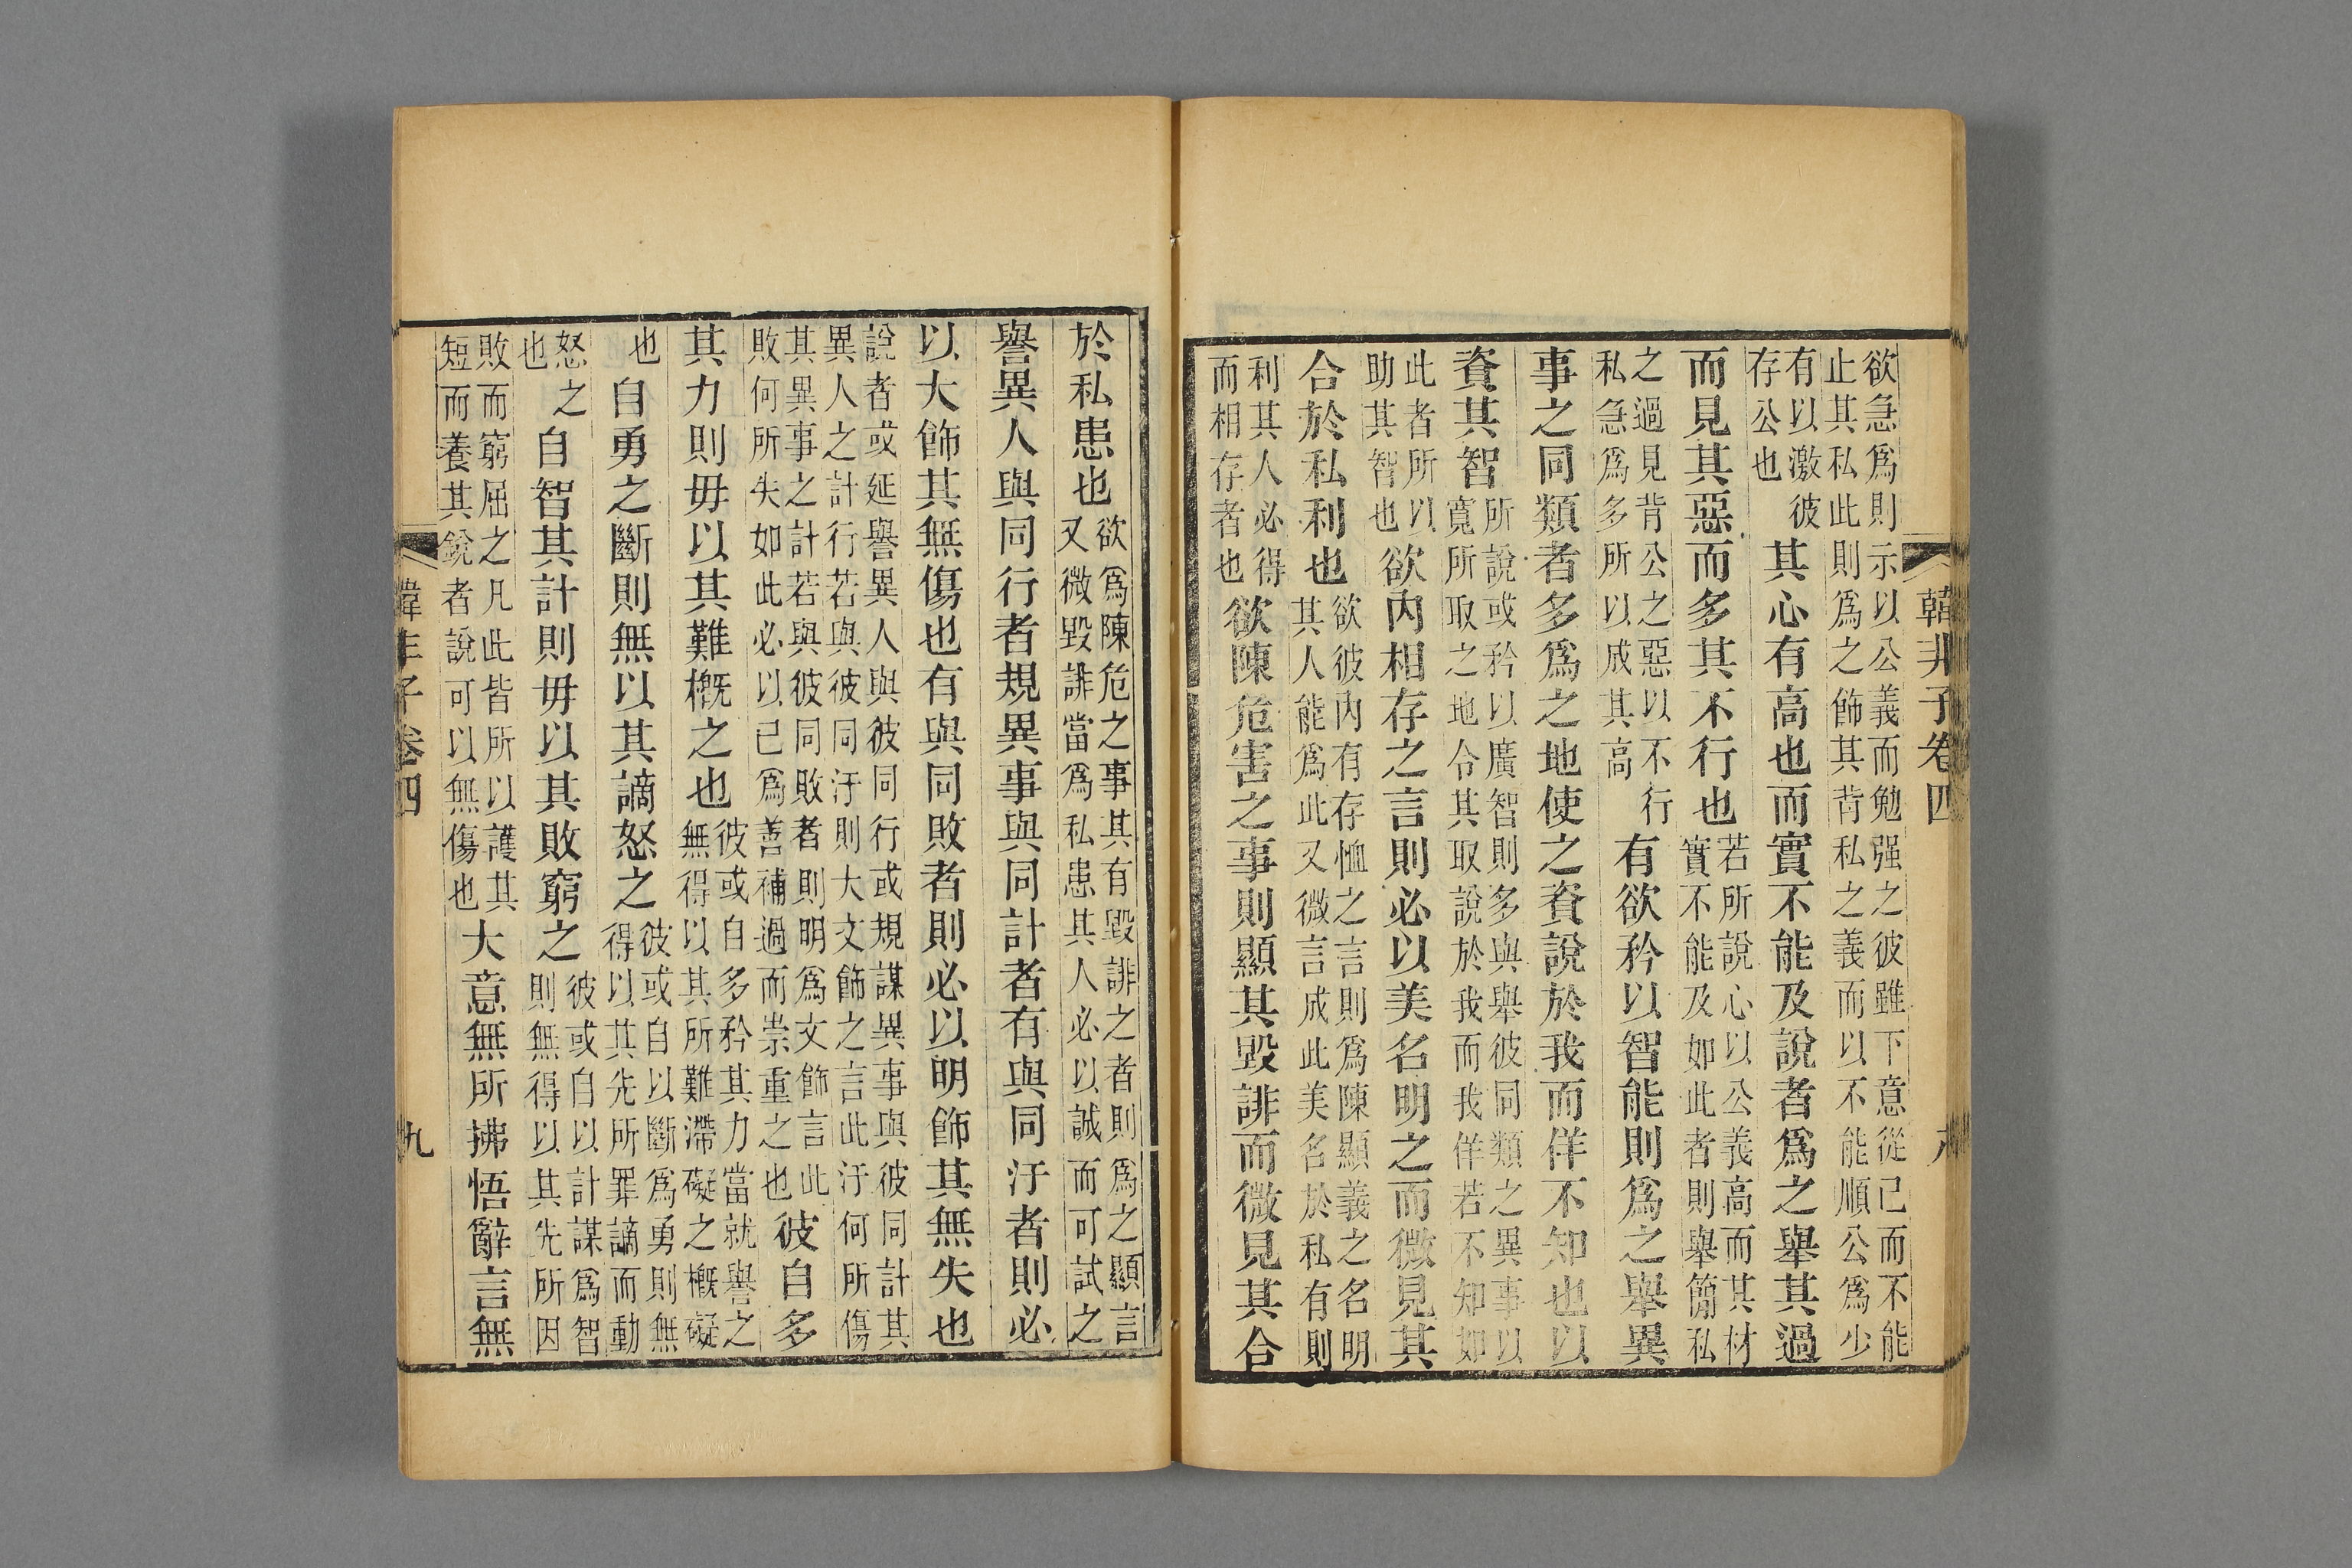 韓非子卷四
欲急爲則示以公義而勉强之彼雖下意從己而不能
止其私此則爲之飾其背私之義而以不能順公爲少
有以激彼
存公也
其心有高也而實不能及說者爲之舉其過
而見其惡而多其不行也
若所說心以公義高而其材
實不能及如此者則舉簡私
之過見背公之惡以不行
私急爲多所以成其高
有欲矜以智能則爲之舉異
事之同類者多爲之地使之資說於我而佯不知也以
資其智
所說或矜以廣智則多與舉彼同類之異事以
寬所取之地令其取說於我而我佯若不知如
此者所以
助其智也
欲內相存之言則必以美名明之而微見其
合於私利也
欲彼內有存恤之言則爲陳顯義之名明
其人能爲此又微言成此美名於私有則
利其人必得
而相存者也
欲陳危害之事則顯其毀誹而微見其合
於私患也
欲爲陳危之事其有毀誹之者則爲之顯言
又微毀誹當爲私患其人必以誠而可試之
譽異人與同行者規異事與同計者有與同汙者則必
以大飾其無傷也有與同敗者則必以明飾其無失也
說者或延譽異人與彼同行或規謀異事與彼同計其
異人之計行若與彼同汙則大文飾之言此汙何所傷
其異事之計若與彼同敗者則明爲文飾言此
敗何所失如此必以已爲善補過而崇重之也
彼自多
其力則毋以其難槪之也
彼或自多矜其力當就譽之
無得以其所難滯礙之槪礙
也
自勇之斷則無以其謫怒之
彼或自以斷爲勇則無
得以其先所罪謫而動
怒之
也
自智其計則毋以其敗窮之
彼或自以計謀爲智
則無得以其先所因
敗而窮屈之凡此皆所以護其
短而養其銳者說可以無傷也
大意無所拂悟辭言無
韓非子卷四
九